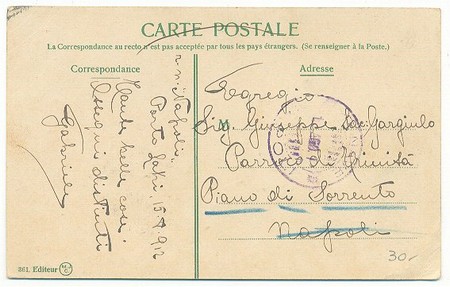 CARTE POSTALE
La Correspondance au recto n'est pas acceptée par tous les pays étrangers. (Se renseigner à la Poste.)
Correspondance
Adresse
r. n. "Napoli"
Porto Laki, 15
912
Tante belle cose.
Ossequi distinti
Gabriele
Egregio
Sig. Giuseppe Sac. Gargiulo
Parroco di Trinità
Piano di Sorrento
Napoli
30-
361. Editeur